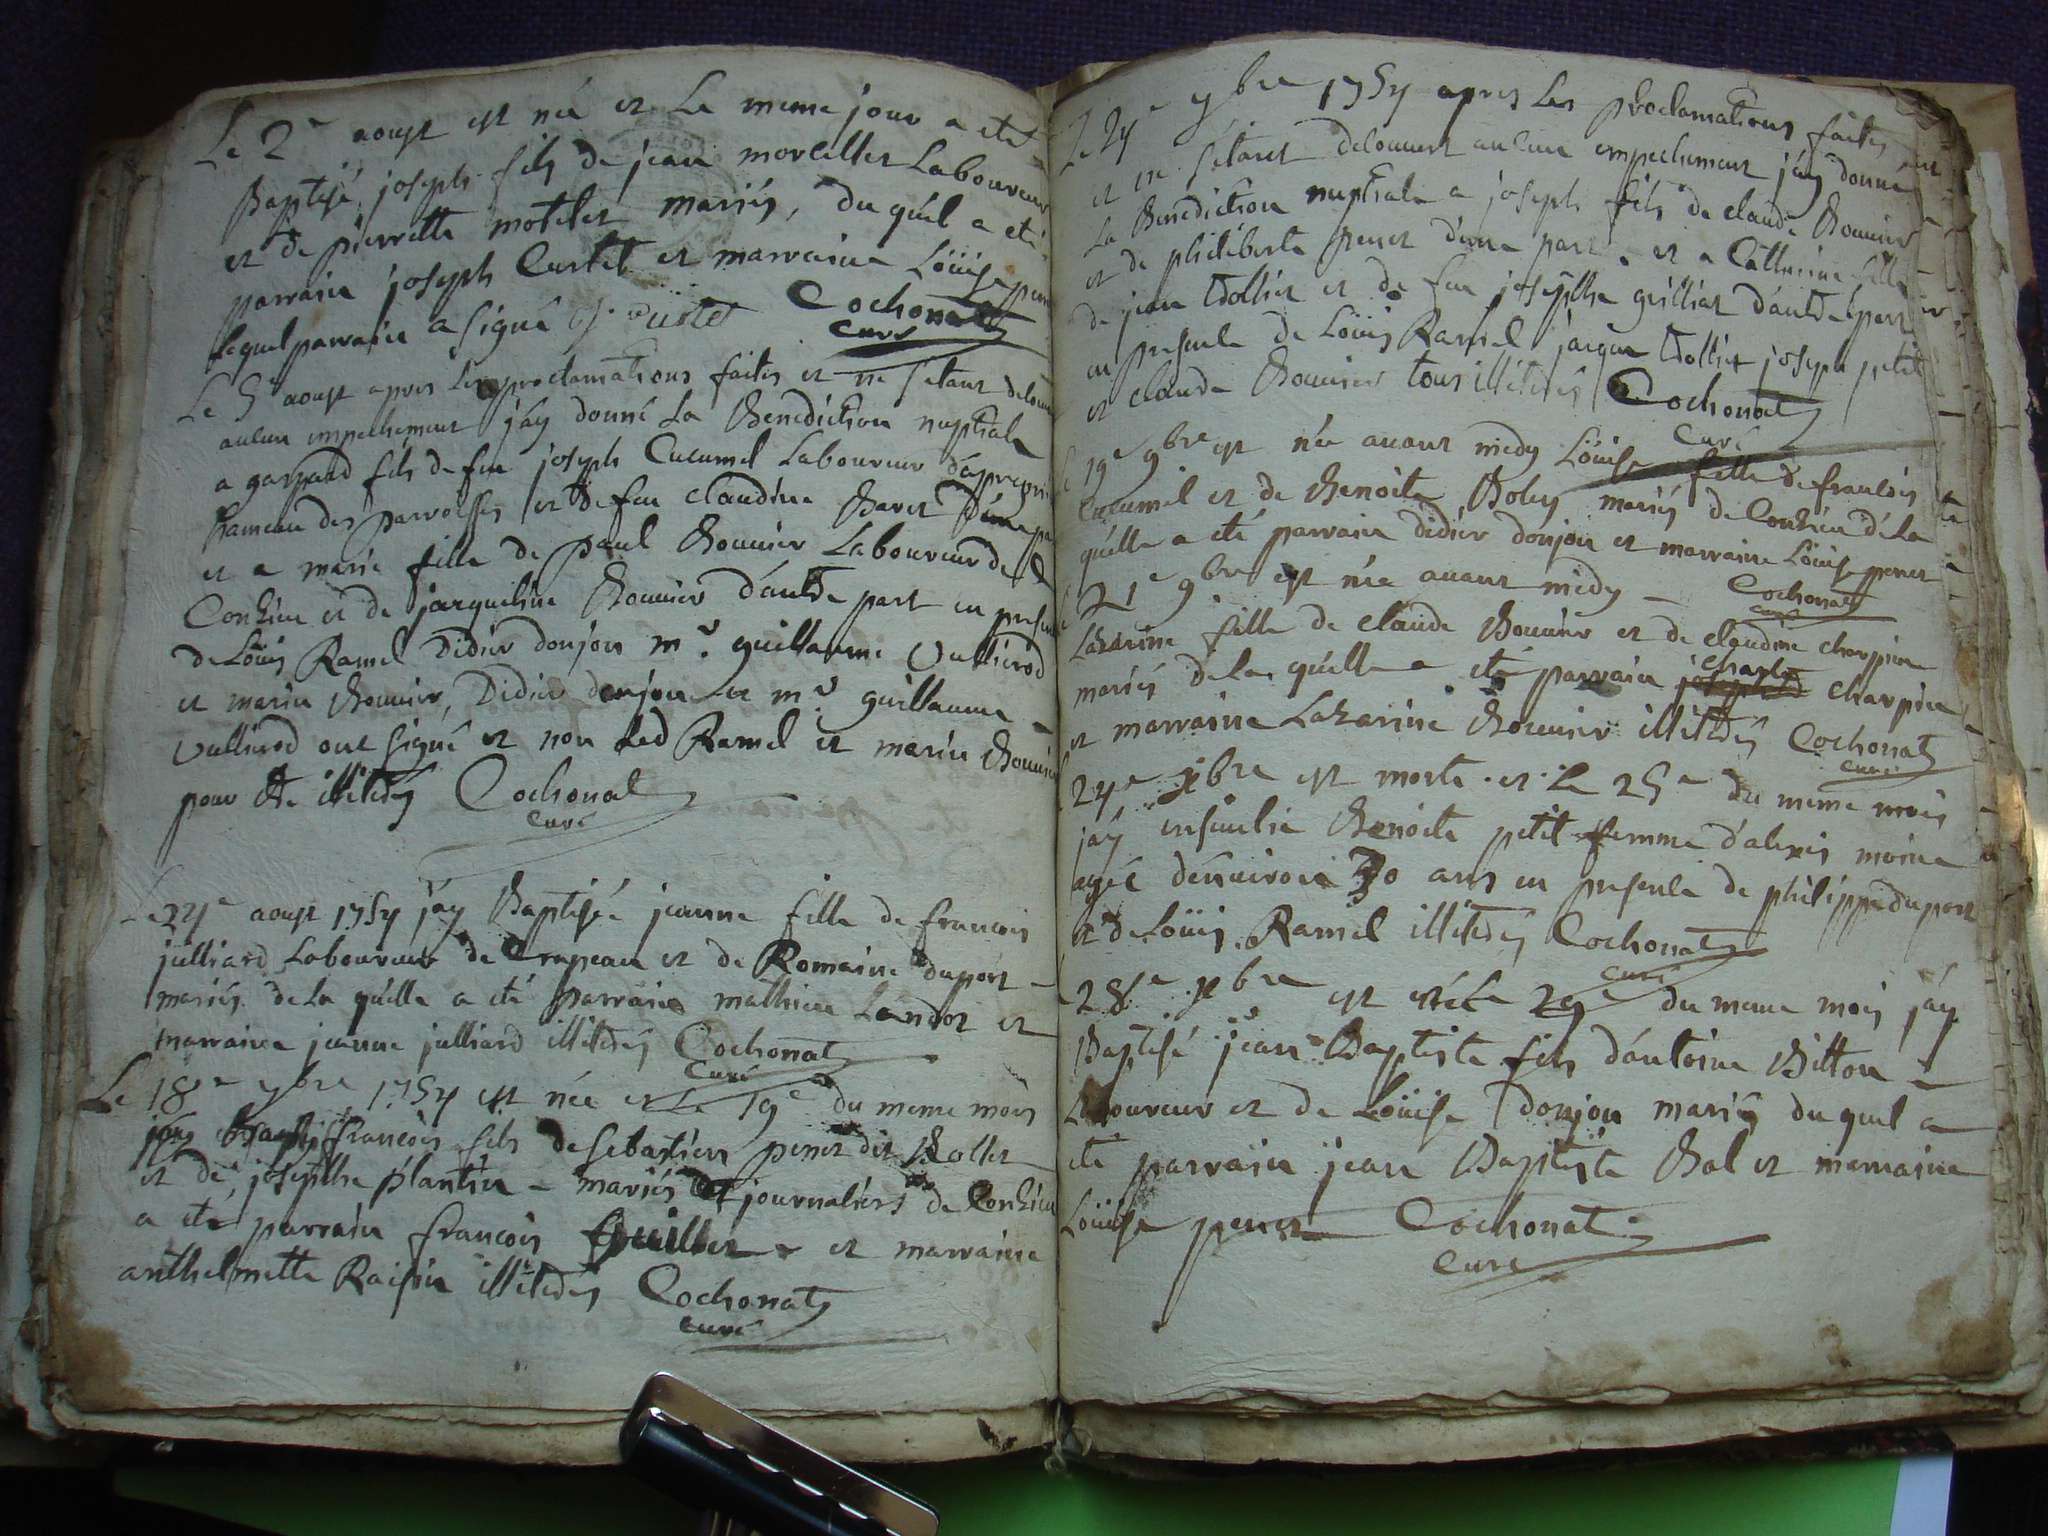 Le 2e aoust est né et Le meme jour a eté
Baptisé joseph fils de jean morcillet Laboureur
et de pierrette motelet mariés, du quel a eté
parrain joseph Curtet et marraine Loüise penet
lequel parrain a signé J. Curtet Cochonat
Curé
Le 5e aoust apres les proclamations faites et ne s'etant
aucun empechement j'ay donné La Benediction nuptiale
a gaspard fils de feu joseph Cucumel Laboureur
hameau des parroisses et de feu claudine Baret d'une part
et a marie fille de paul Bonnier Laboureur de
Conzieu et de jacqueline Bonnier d'autre part en presence
de Loüis Ramel Didier donjon mr. guillaume Vullierod
et marin Bonnier, Didier donjon et mr. guillaume
Vullierod ont signé et non led Ramel et marin Bonnier
pour etre illiterés Cochonat
curé
Le 24e aoust 1754 j'ay Baptisée jeanne fille de francois
julliard Laboureur de Crapeau et de Romaine duport
mariés de la quelle a eté parrain mathieu Landoz et
marraine jeanne julliard illiterés Cochonat
Curé
Le 18e 7bre 1754 est née et Le 19e du meme mois
j'ay francois fils de Sebastien penet dit Rollet
et de josephe plantin mariés journaliers de Conzieu
a eté parrain francois Guillet et marraine
anthelmette Raisin illiterés Cochonat
curé
Le 24e 7bre 1754 apres Les proclamations faites
et ne s'etant decouvert aucun empechement j'ay donné
La Benediction nuptiale a joseph fils de claude Bonnier
et de philiberte penet d'une part. et a Catherine fille
de jean trollier et de feu josephe guilliat d'autre part
en presence de Loüis Ramel jacque trollier joseph petit
et claude Bonnier tous illiterés Cochonat
Curé
19e 9bre est née avant midy Loüise fille de francois
Cucumel et de Benoite Boley mariés de Conzieu de La
quelle a eté parrain didier donjon et marraine Loüise penet
Cochonat
curé
21e 9bre est née avant midy
Lazarine fille de claude Bonnier et de claudine charpine
mariés de La quelle a eté parrain charle charpine
et marraine Lazarine Bonnier illiterés Cochonat
curé
24e xbre est morte et Le 25e du meme mois
j'ay ensevelie Benoite petit femme d'alexis moine
agée d'environ 30 ans en presence de philippe duport
et de Loüis Ramel illiterés Cochonat
curé
28e xbre est né Le 29e du meme mois j'ay
Baptisé jean Baptiste fils d'antoine Billon
Laboureur et de Loüise donjon mariés du quel a
eté parrain jean Baptiste Bal et marraine
Loüise penet Cochonat
Curé